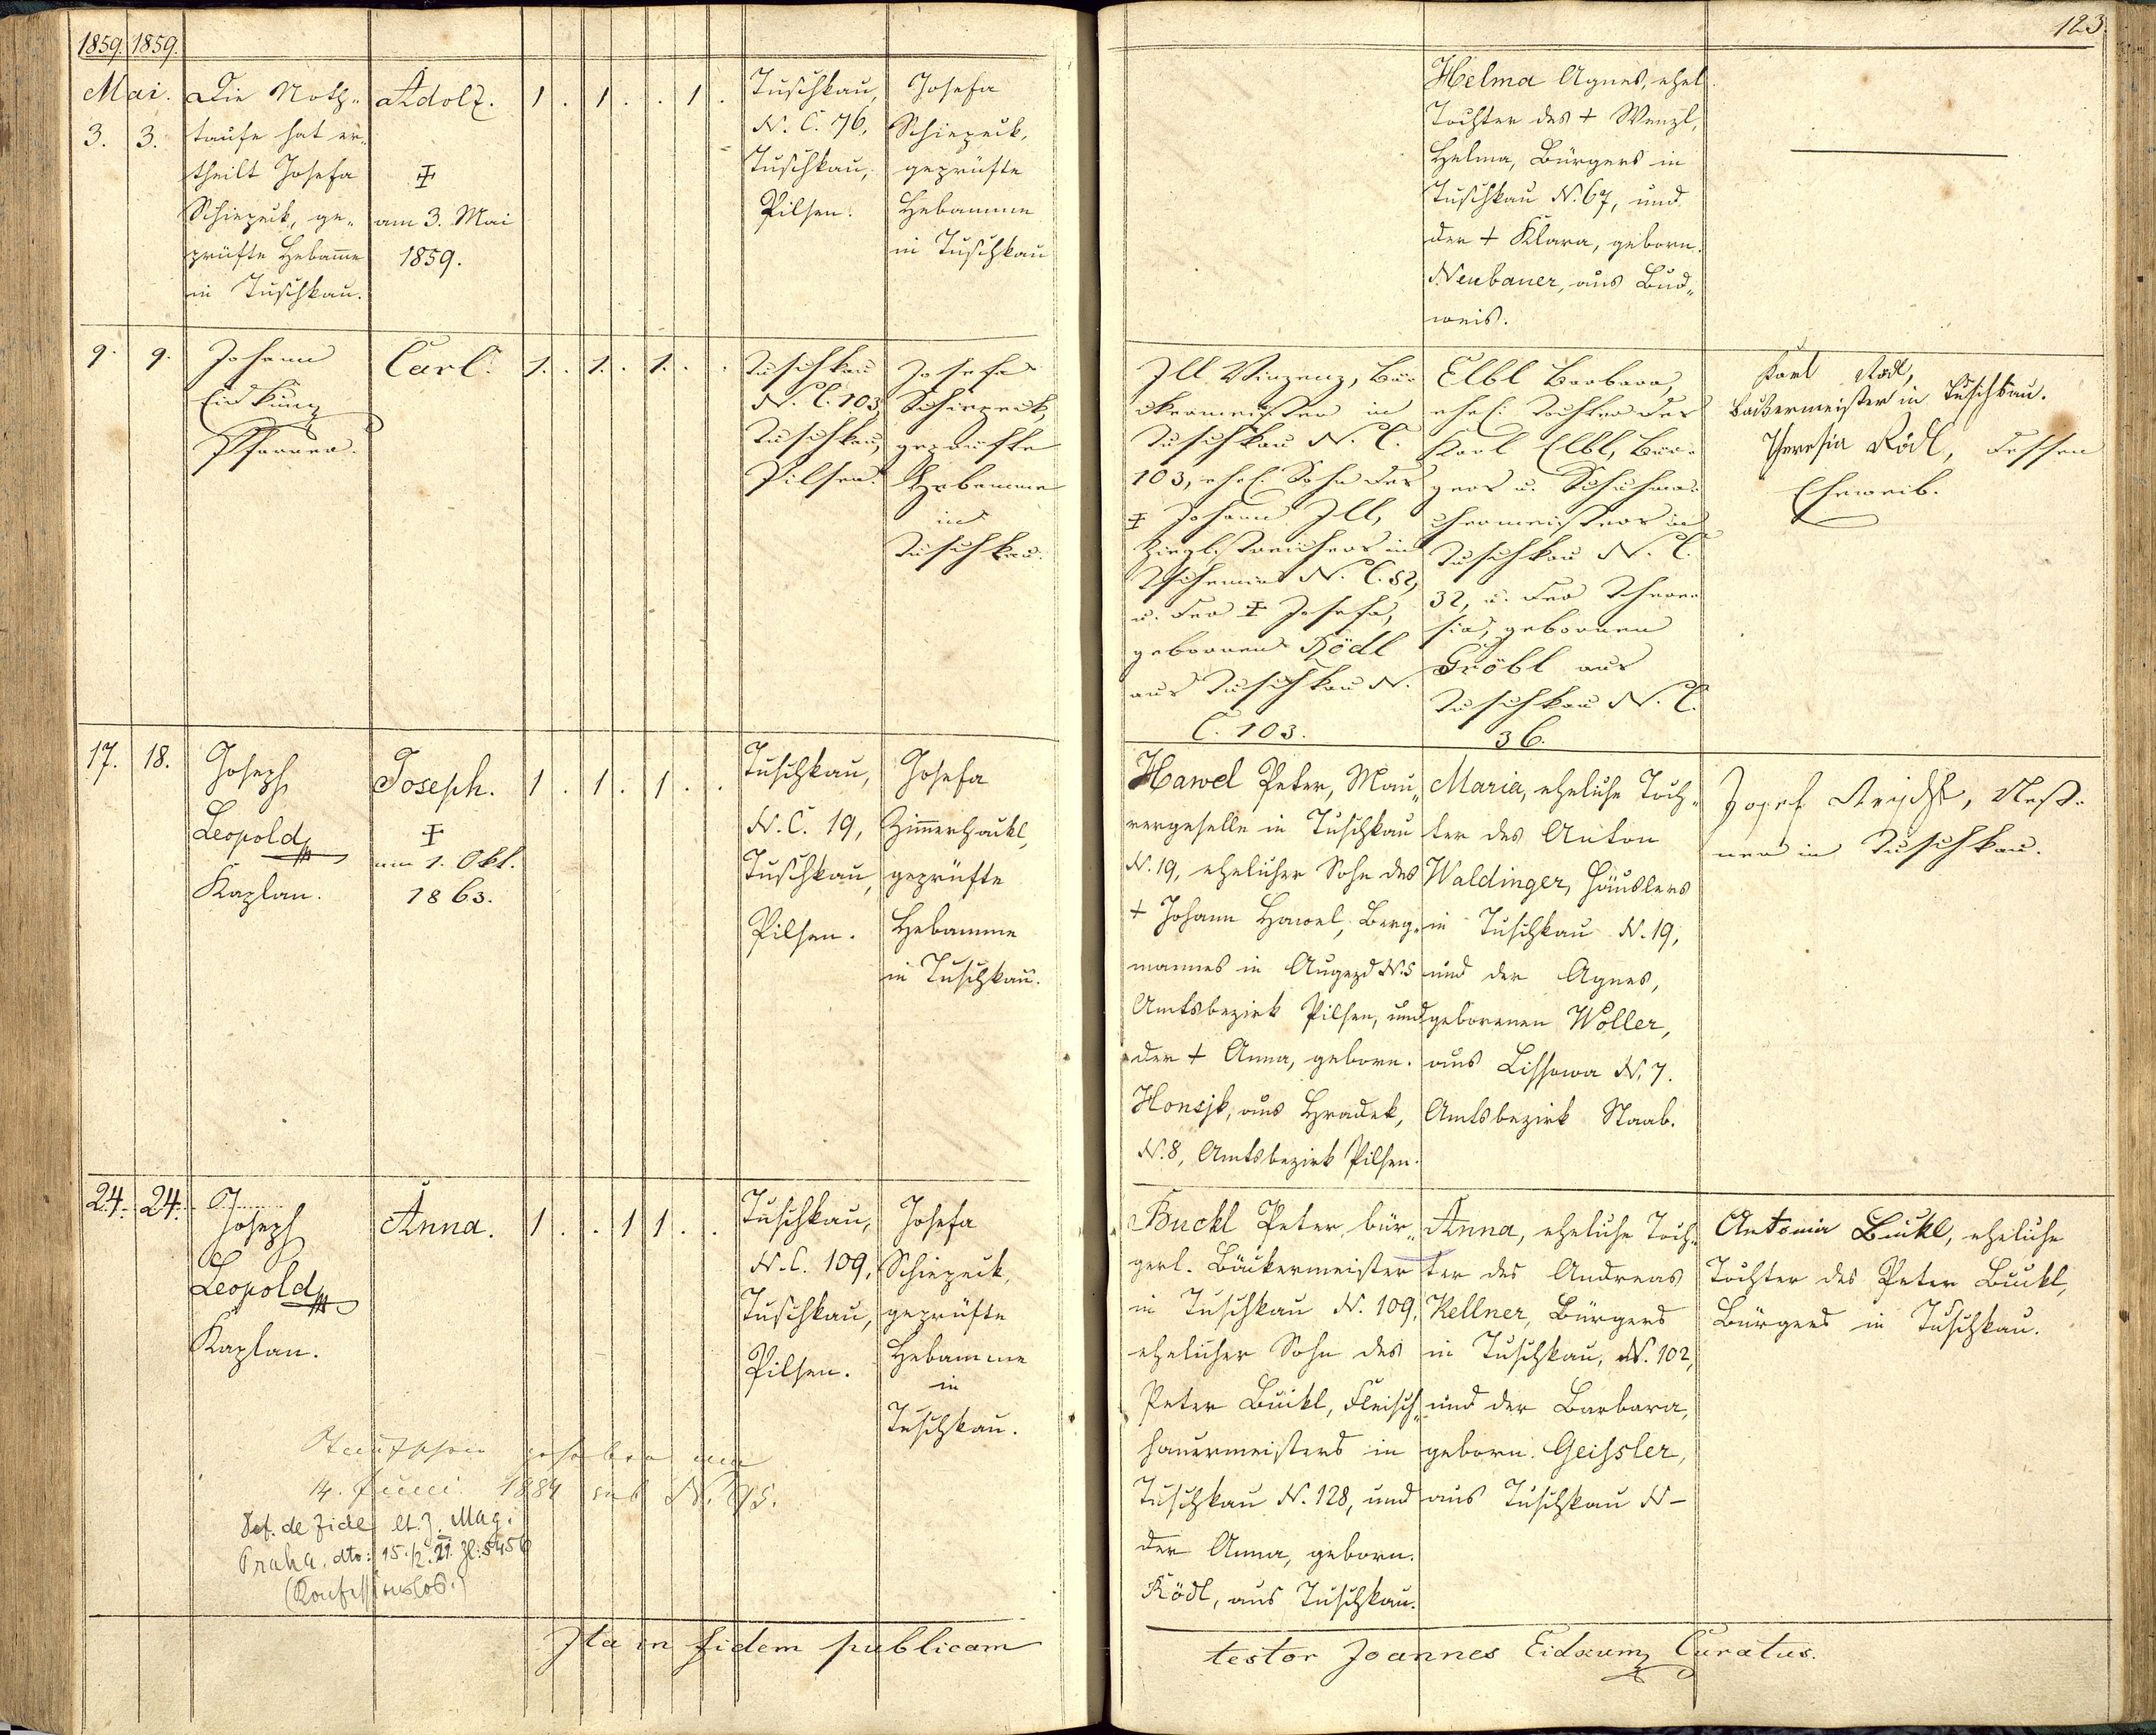 1859. 1859.
123.
Mai.
3. 3.
Die Noth„
taufe hat er„
theilt Josefa
Schiepeck, ge„
prüfte Hebam̄e
in Tuschkau.
Adolf.
am 3. Mai
1859.
1. 1. 1.
Tuschkau,
N. C. 76,
Tuschkau,
Pilsen.
Josefa
Schiepeck,
geprüfte
Hebamme
in Tuschkau
Helma Agnes, ehel.
Tochter des † Wenzl,
Helma, Bürgers in
Tuschkau N. 67, und
der † Klara, geborn.
Neubauer, aus Bud„
weis.
9. 9.
Johann
Pfarrer.
Carl.
1. 1. 1.
Tuschkau
N. C. 103,
Tuschkau,
Pilsen.
Josefa
Schiepeck,
geprüfte
Hebamme
in
Tuschkau.
Ill Vinzenz, Bä„
ckermeister in
Tuschkau N. C.
103, ehel. Sohn des
‡ Johann Ill,
Zieglstreichers in
N. C. 52,
u. der ‡ Josefa,
gebornen Rödl
aus Tuschkau N.
C. 103.
Elbl Barbara,
ehel. Tochter des
Karl Elbl, Bür-
gers u. Schuhma-
chermeisters in
Tuschkau N. C.
32, u. der There-
sia, gebornen
Gröbl aus
Tuschkau N. C.
36.
Karl Rödl,
Bäckermeister in Tuschkau.
Theresia Rödl, dessen
Eheweib.
17. 18.
Joseph
Leopold
Kaplan.
Joseph.
‡
am 1. Okt.
1863.
1. 1. 1.
Tuschkau,
N. C. 19,
Tuschkau,
Pilsen.
Josefa
Zimmerhackl,
geprüfte
Hebamme
in Tuschkau.
Hawel Peter, Mau„
rergeselle in Tuschkau
N. 19, ehelicher Sohn des
† Johann Hawel, Berg„
mannes in Augezd N. 5
Amtsbezirk Pilsen, und
der † Anna, geborn.
Honsjk, aus Hradek,
N. 8, Amtsbezirk Pilsen.
Maria, eheliche Toch„
ter des Anton
Waldinger, Häuslers
in Tuschkau N. 19,
und der Agnes,
geborenen Woller,
aus Lissowa N. 7.
Amtsbezirk Staab.
Josef
in Tuschkau.
24. 24.
Joseph
Leopold
Kaplan.
Anna.
1. 1 1.
Tuschkau,
N. C. 109,
Tuschkau,
Pilsen.
Josefa
Schiepeck,
geprüfte
Hebamme
in
Tuschkau.
Buckl Peter, bür„
gerl. Bäckermeister
in Tuschkau N. 109,
ehelicher Sohn des
Peter Buckl, Fleisch„
hauermeisters in
Tuschkau N. 128, und
der Anna, geborn.
Rödl, aus Tuschkau.
Anna, eheliche Toch„
ter des Andreas
Kellner, Bürgers
in Tuschkau, N. 102,
und der Barbara,
geborn. Geissler,
aus Tuschkau N –
Antonia Buckl, eheliche
Tochter des Peter Buckl,
Bürgers in Tuschkau.
Taufschein gehoben am
14. Juni 1884 sub N. 95.
Def. de fide lt. Z. Mag.
Praha, dto: 15./2. 21. Zl: 5456
(Konfessionslos.)
Ita in fidem publicam
testor Joannes Curatus.